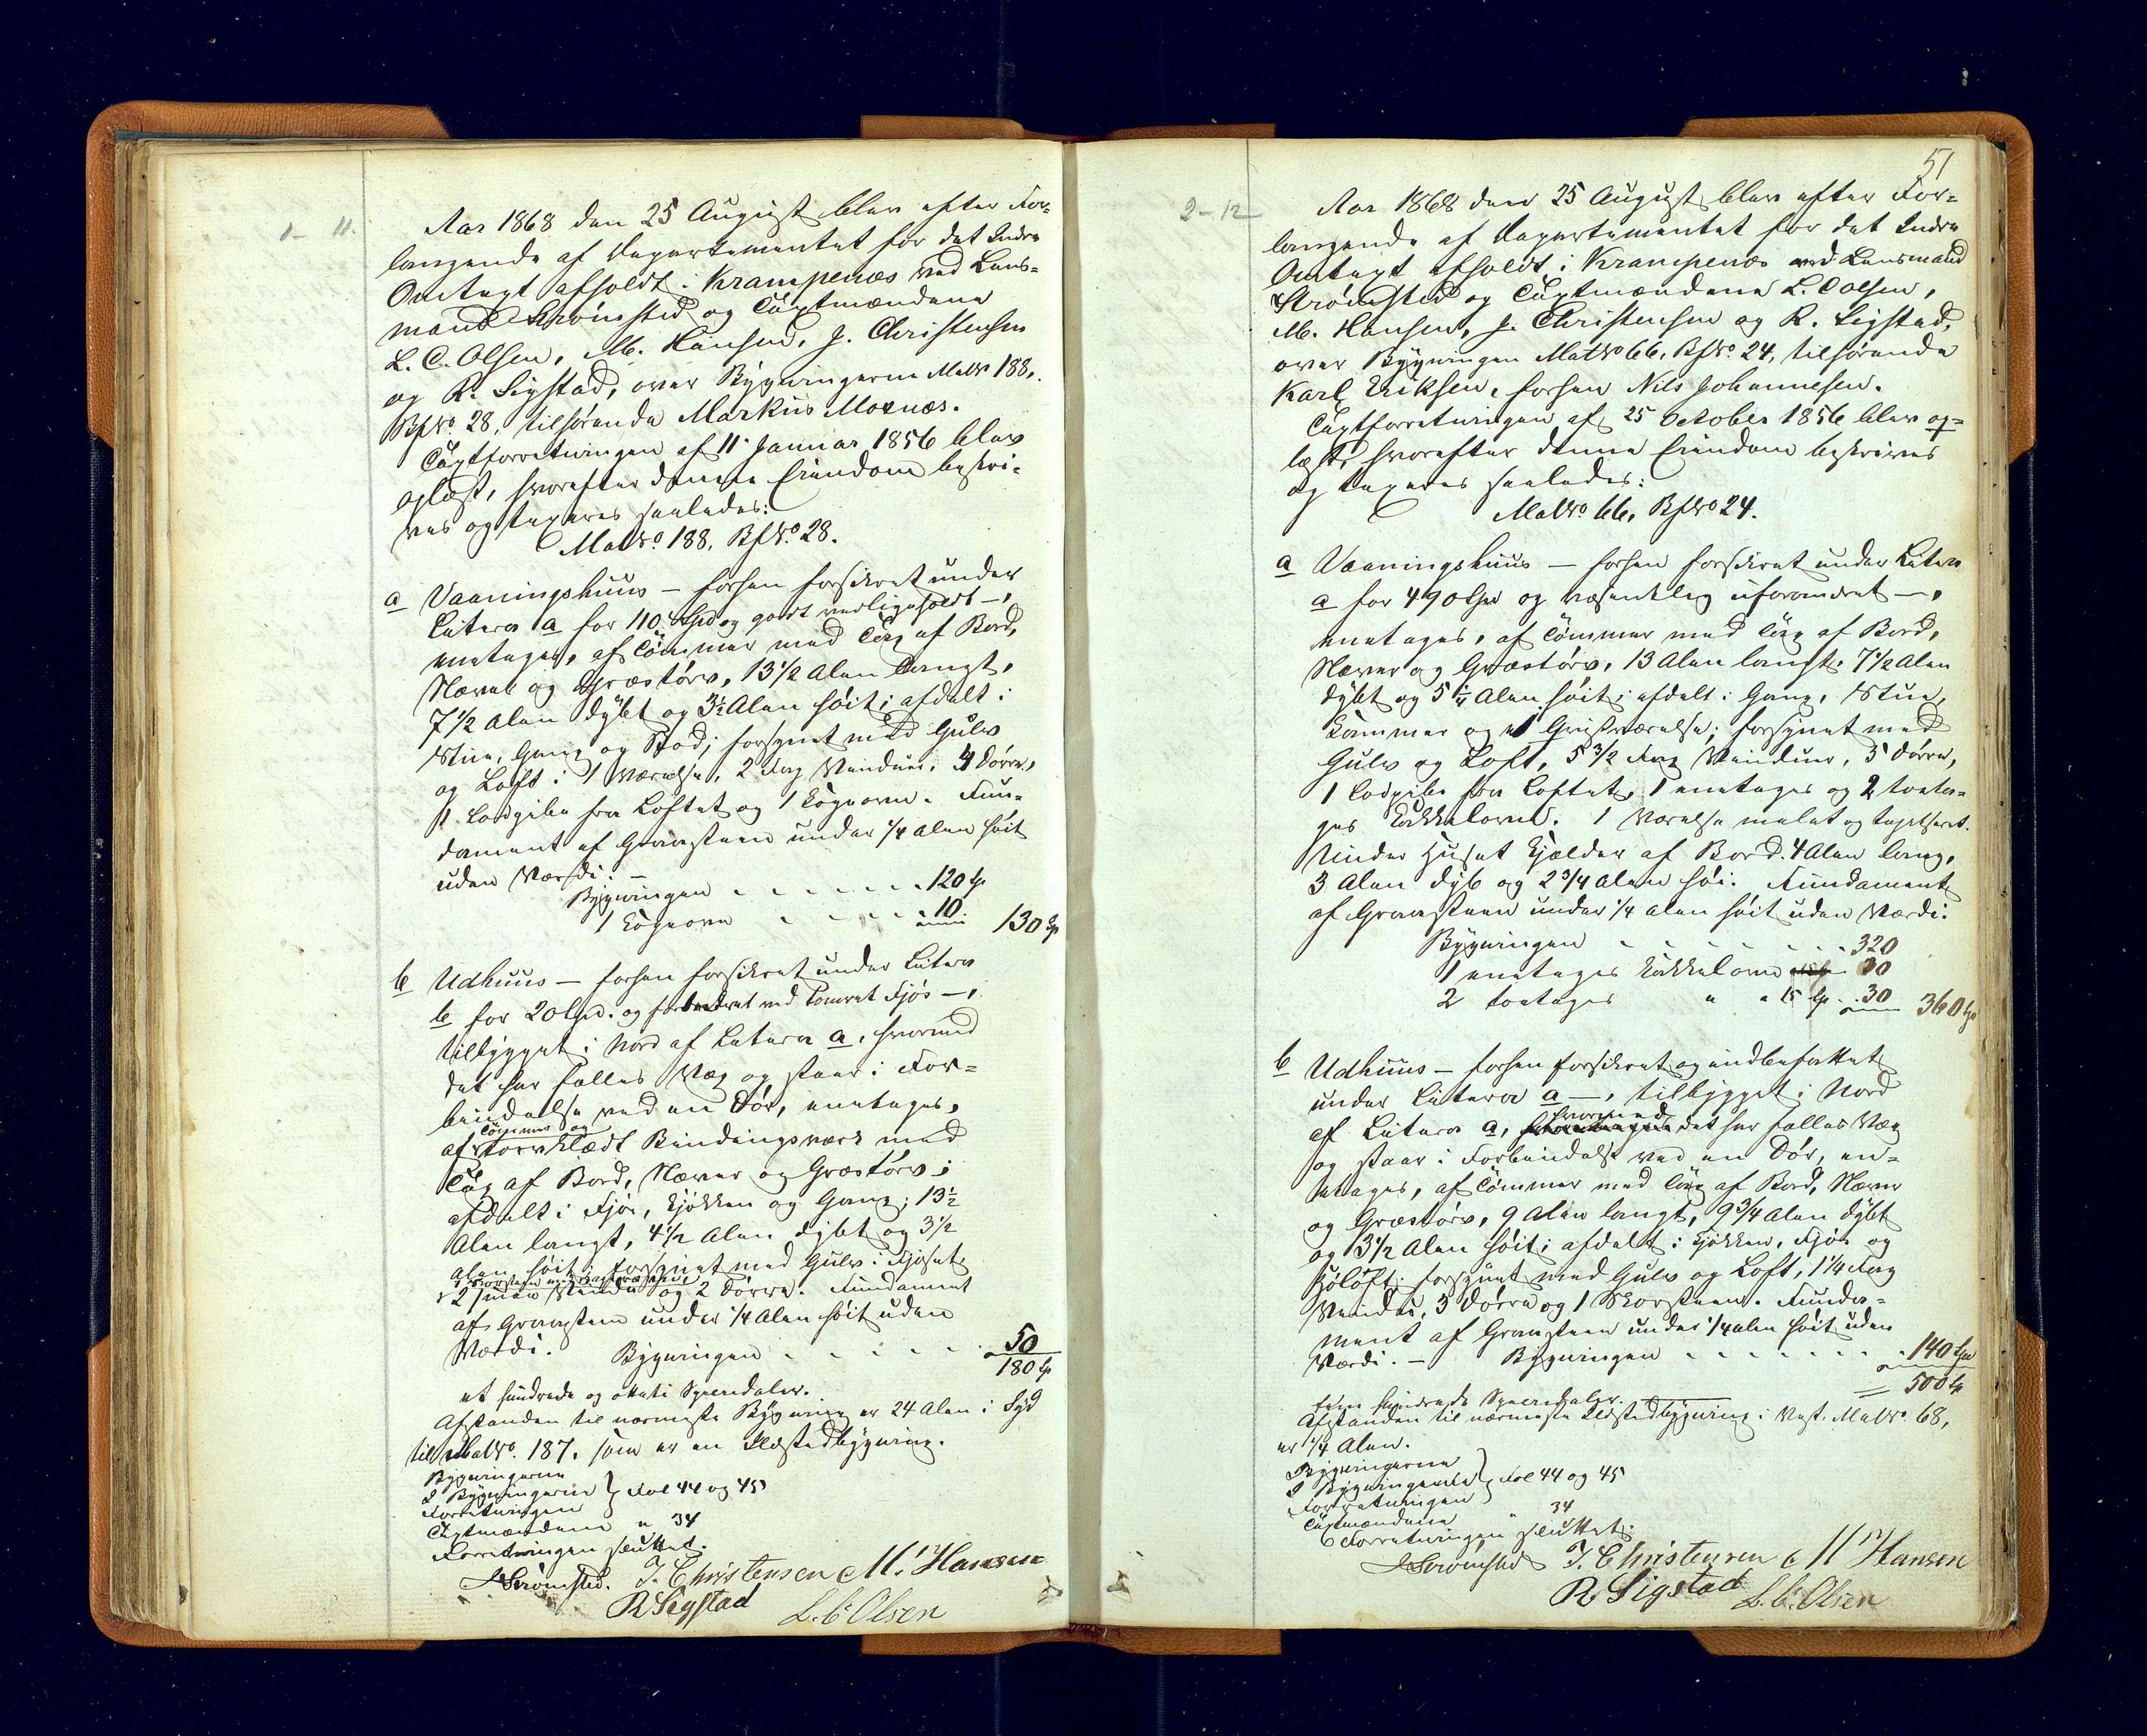 1- 11.
Aar 1868 den 25 August blev efter For-
langende af Departementet for det Indre
Omtaxt afholdt i Krampenæs ved Lens-
mand Strømsted og Taxtmændene
L. C. Olsen, M. Hansen, J. Christensen
og R. Sigstad, over Bygningerne MatNo 188,
BfNo. 28, tilhørende Markus Moxnæs.
Taxtforretningen af 11 Januar 1856 blev
oplæst, hvorefter denne Eiendom beskri-
ves og taxeres saaledes:
MatNo. 188, BfNo. 28.
a Vaaningshuus – forhen forsikret under
Litera a for 110 Spd og godt vedligeholdt –,
eenetages, af Tømmer med Tag af Bord,
Næver og Græstørv, 13 1/2 Alen langt,
7 1/2 Alen dybt og 3 1/2 Alen høit; afdelt i
Stue, Gang og Bod; forsynet med Gulv
og Loft i 1 Værelse, 2 Fag Vinduer, 4 Dørre,
1 Lovpibe fra Loftet og 1 Kogeovn. Fun-
dament af Graasteen under 1/4 Alen høit
uden Værdi. –
Bygningen . . . . . . . 120 Sp
1 Kogeovn . . . . 10 130 Sp
b Udhuus – forhen forsikret under Litera
b for 20 Spd. og forbedret ved tømret Fjøs –,
tilbygget i Nord af Litera a, hvormed
det har fælles Væg og staar i For-
bindelse ved en Dør, eenetages,
Tømmer og
af torvklædt Bindingsværk med
Tag af Bord, Næver og Græstørv;
afdelt i Fjøs, Kjøkken og Gang; 13 1/2
Alen langt, 4 1/2 Alen dybt og 3 1/2
Alen høit; forsynet med Gulv i Fjøset,
1 Skorsteen
2 smaa Vinduer og 2 Dørre. Fundament
af Graasteen under 1/4 Alen høit uden
Værdi. Bygningen . . . . . . 50
180 Sp
et hundrede og otteti Speciedaler.
Afstanden til nærmeste Bygning er 24 Alen i Syd
til MatNo. 187, som er en Ildstedbygning.
Bygningerne
Bygningerne } Fol 44 og 45
Forretningen
Taxtmændene " 34
Forretningen sluttet.
Strømsted. J. Christensen M. Hansen
R Sigstad L. C. Olsen
51
2-12
Aar 1868 den 25 August blev efter For-
langende af Departementet for det Indre
Omtaxt afholdt i Krampenæs ved Lensmand
Strømsted og Taxtmændene L. C Olsen,
M. Hansen, J. Christensen og R. Sigstad,
over Bygningen MatNo 66, BfNo. 24, tilhørende
Karl Eriksen, forhen Nils Johannesen.
Taxtforretningen af 25 October 1856 blev op-
læst, hvorefter denne Eiendom beskrives
og taxeres saaledes:
MatNo. 66, BfNo 24.
a Vaaningshuus – forhen forsikret under Litera
a for 490 Spd og væsentlig uforandret –,
eenetages, af Tømmer med Tag af Bord,
Næver og Græstørv, 13 Alen langt, 7 1/2 Alen
dybt og 5 1/4 Alen høit; afdelt i Gang, Stue,
Kammer og 1 Qvistværelse; forsynet med
Gulv og Loft, 5 3/2 Fag Vinduer, 5 Dørre,
1 Lovpibe fra Loftet, 1 eenetages og 2 toeta-
ges Kakkelovne. 1 Værelse malet og tapetseret.
Under Huset Kjælder af Bord. 4 Alen lang,
3 Alen dyb og 2 3/4 Alen høi. Fundament
af Graasteen under 1/4 Alen høit uden Værdi.
Bygningen . . . . . . . 320
1 eenetages Kakkelovn 10
2 toetages " a 15 Sp . . 30 360 Sp
b Udhuus – forhen forsikret og indbefattet
under Litera a –, tilbygget i Nord
hvormed
af Litera a, det har fælles Væg
og staar i Forbindelse ved en Dør, een-
etages, af Tømmer med Tag af Bord, Næver
og Græstørv, 9 Alen langt, 9 3/4 Alen dybt
og 3 1/2 Alen høit; afdelt i Kjøkken, Fjøs og
Høloft; forsynet med Gulv og Loft, 1 1/4 Fag
Vindu, 3 Dørre og 1 Skorsteen. Funda-
ment af Graasteen under 1/4 Alen høit uden
Værdi. – Bygningen . . . . . . . 140 Spd
500 Sp
fem hundrede Speciedaler.
Afstanden til nærmeste Ildstedbygning i Vest. MatNo. 68,
er 1/4 Alen.
Bygningerne
Bygningerne } Fol 44 og 45
Forretningen
Taxtmændene " 34
Forretningen sluttet.
Strømsted J. Christensen M Hansen
R. Sigstad L. C. Olsen